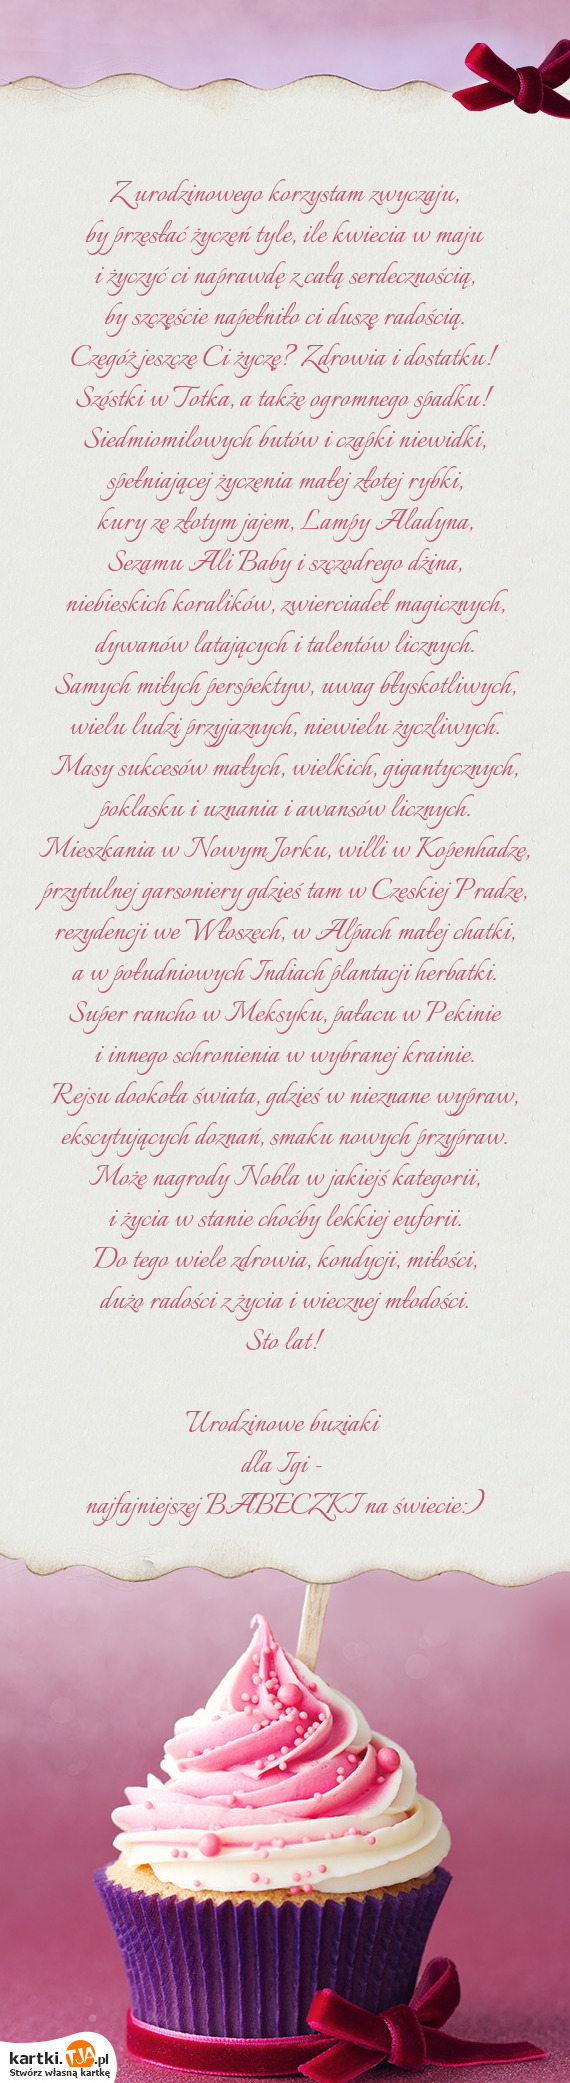 Z urodzinowego korzystam zwyczaju,
by przesłać życzeń tyle, ile kwiecia w maju
i życzyć ci naprawdę z całą serdecznością,
by szczęście napełniło ci duszę radością.
Czegóż jeszcze Ci życzę? Zdrowia i dostatku!
Szóstki w Totka, a także ogromnego spadku!
Siedmiomilowych butów i czapki niewidki,
spełniającej życzenia małej złotej rybki,
kury ze złotym jajem, Lampy Aladyna,
Sezamu Ali Baby i szczodrego dżina,
niebieskich koralików, zwierciadeł magicznych,
dywanów latających i talentów licznych.
Samych miłych perspektyw, uwag błyskotliwych,
wielu ludzi przyjaznych, niewielu życzliwych.
Masy sukcesów małych, wielkich, gigantycznych,
poklasku i uznania i awansów licznych.
Mieszkania w Nowym Jorku, willi w Kopenhadze,
przytulnej garsoniery gdzieś tam w Czeskiej Pradze,
rezydencji we Włoszech, w Alpach małej chatki,
a w południowych Indiach plantacji herbatki.
Super rancho w Meksyku, pałacu w Pekinie
i innego schronienia w wybranej krainie.
Rejsu dookoła świata, gdzieś w nieznane wypraw,
ekscytujących doznań, smaku nowych przypraw.
Może nagrody Nobla w jakiejś kategorii,
i życia w stanie choćby lekkiej euforii.
Do tego wiele zdrowia, kondycji, miłości,
dużo radości z życia i wiecznej młodości.
Sto lat!
Urodzinowe buziaki
dla Igi -
najfajniejszej BABECZKI na świecie:)
kartki.TJA.pl
Stwórz własną kartkę